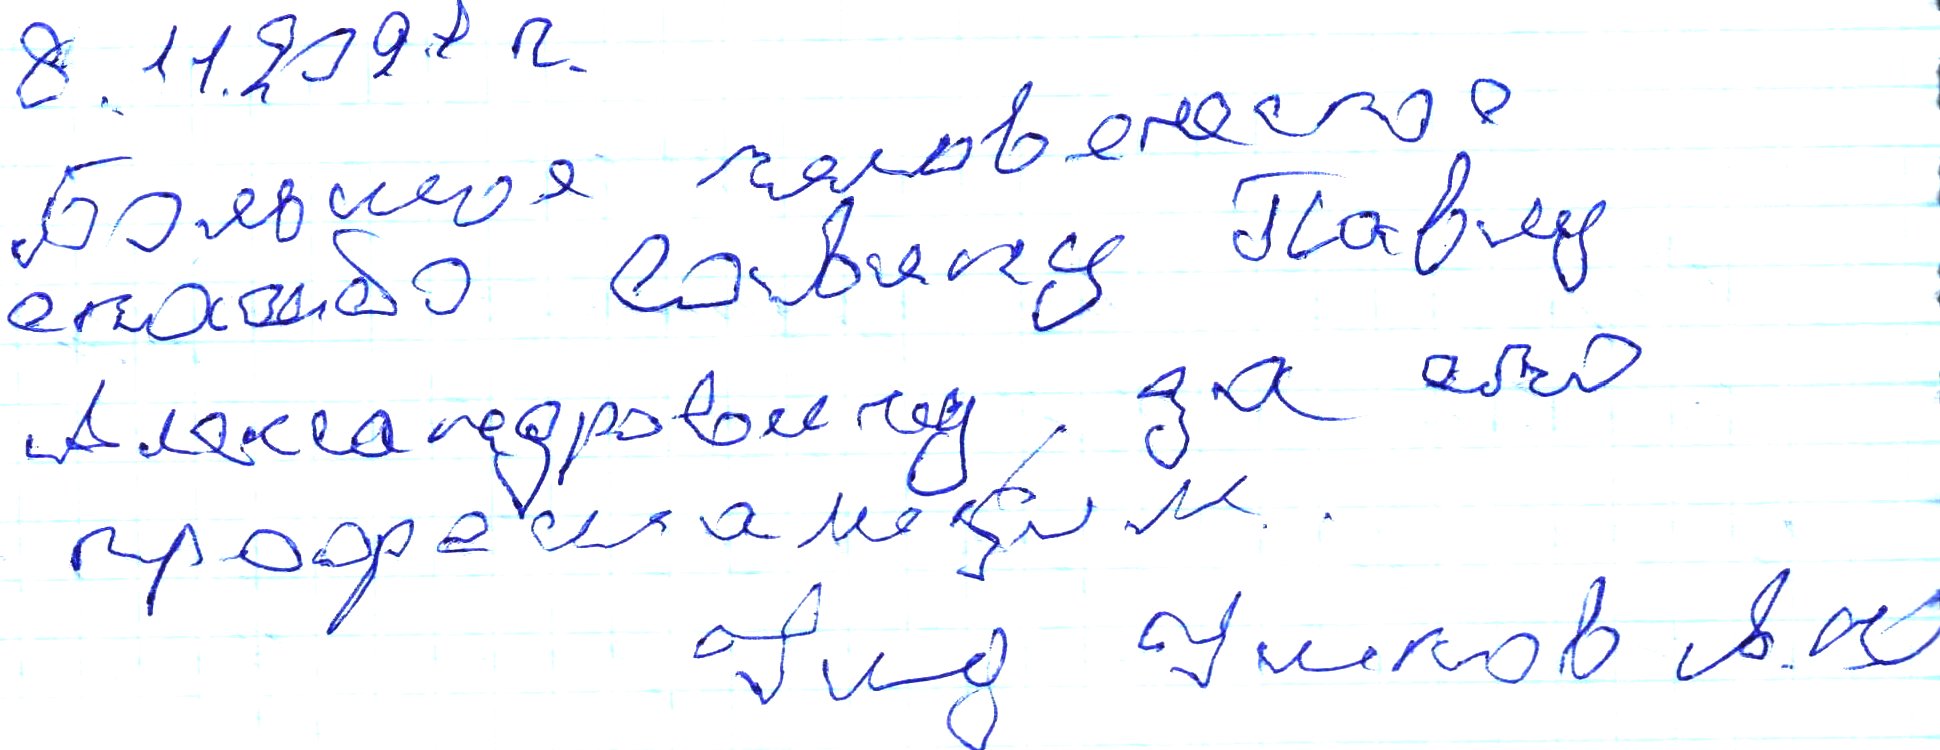 8.11.2021 г.
Большое человеческое
спасибо Савенку Павлу
Александровичу за его
профессионализм.
Гид Чижов А.